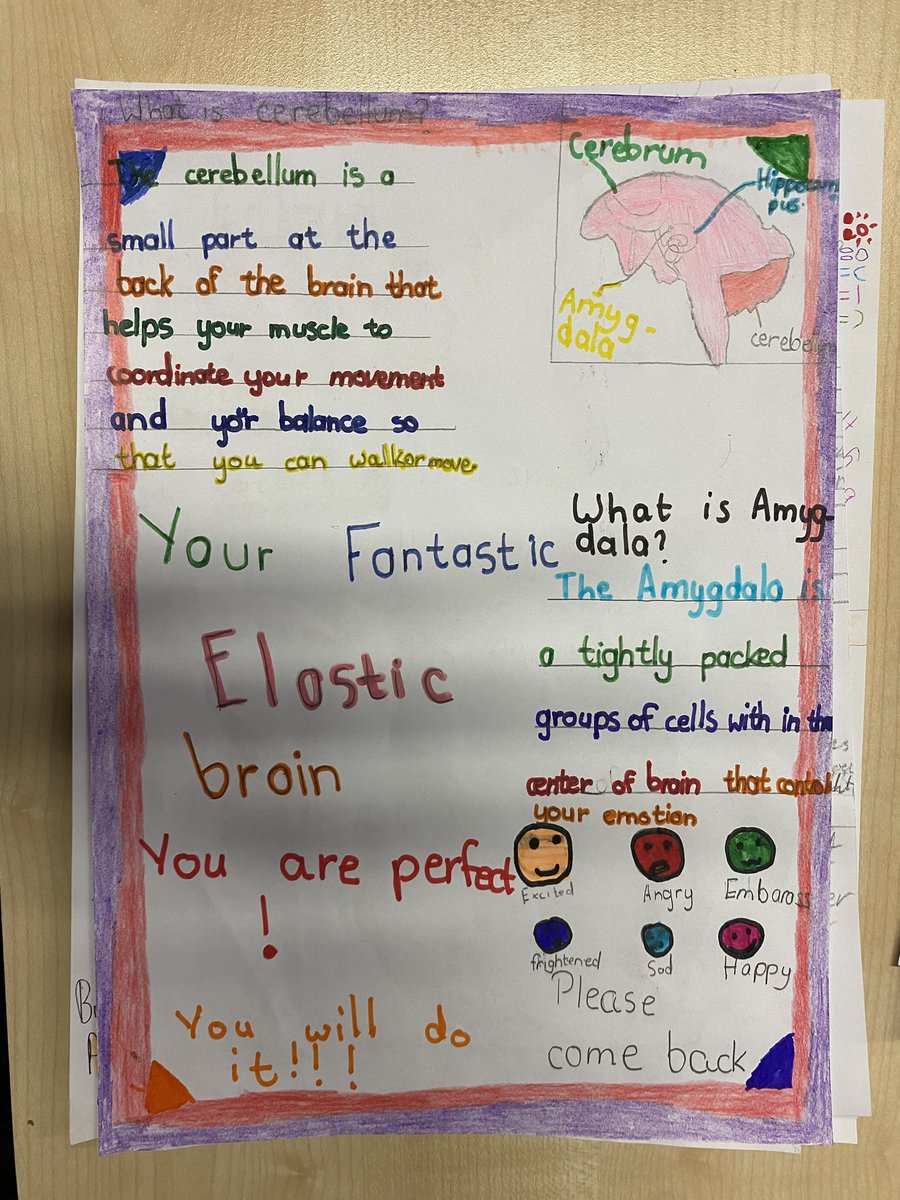 What is cerebellum?
The cerebellum is a
small part at the
back of the brain that
helps your muscle to
coordinate your movement
and your balance so
that you can walk or move.
Cerebrum
Hippocam
pus.
Amyg-
dala
cerebellu
Your Fantastic
Elastic
brain
You are perfect
!
You will do
it!!!
What is Amyg-
dala?
The Amygdala is
a tightly packed
groups of cells with in the
center of brain that
your emotion
Excited
Angry
Embaross
frightened
Sad
Happy
Please
come back